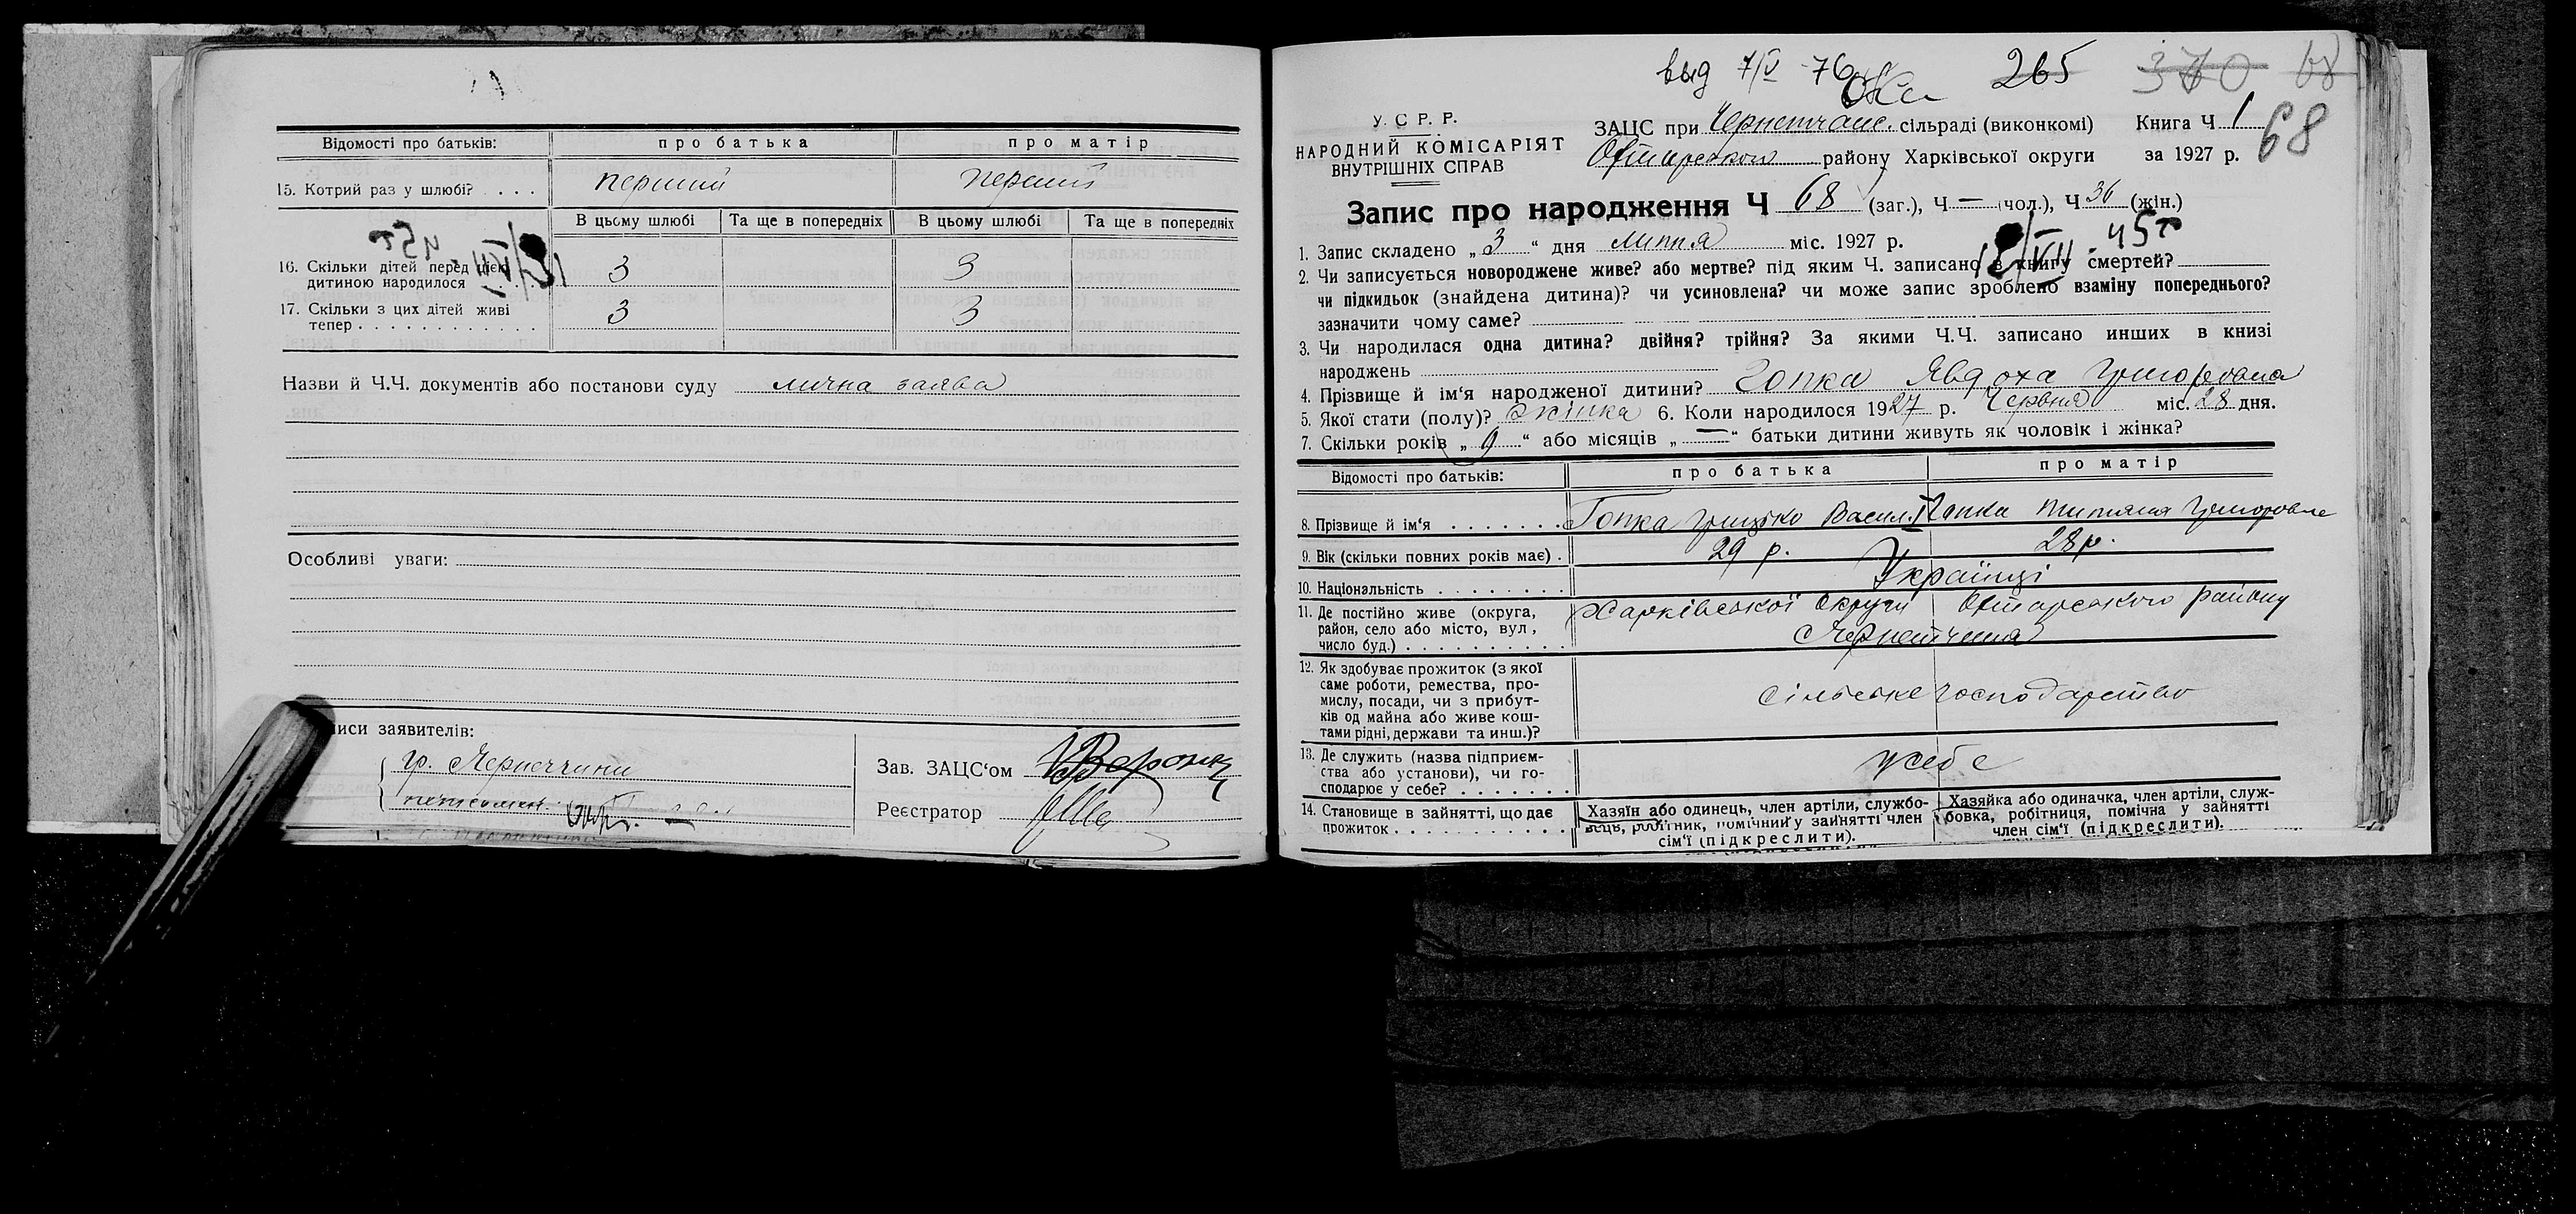 Відомості про батьків: про батька про матір
15. Котрий раз у шлюбі? . . . перший перший
В цьому шлюбі Та ще в попередніх В цьому шлюбі Та ще в попередніх
16. Скільки дітей перед цією
дитиною народилося . . . 3 3
17. Скільки з цих дітей живі
тепер . . . . . . . . . . . . 3 3
Назви й Ч.Ч. документів або постанови суду лична заява
Особливі уваги:
иси заявителів:
гр. Чернеччини
Зав. ЗАЦС‘ом
Реєстратор
выд 7/V 76 265 370 68
68
У. С Р. Р.
НАРОДНИЙ КОМІСАРІЯТ
ВНУТРІШНІХ СПРАВ
ЗАЦС при Чернетчанс. сільраді (виконкомі) Книга Ч 1
Охтирського району Харківської округи за 1927 р.
Запис про народження Ч 68 (заг.), Ч — (чол.), Ч 36 (жін.)
1. Запис складено „ 3 “ дня липня міс. 1927 р.
12/VII - 45 г
2. Чи записується новороджене живе? або мертве? під яким Ч. записано в книгу смертей?
чи підкидьок (знайдена дитина)? чи усиновлена? чи може запис зроблено взаміну попереднього?
зазначити чому саме?
3. Чи народилася одна дитина? двійня? трійня? За якими Ч.Ч. записано инших в книзі
народжень
4. Прізвище й ім‘я народженої дитини? Гопка Явдоха Григоровна
5. Якої стати (полу)? жінка 6. Коли народилося 1927 р. Червня міс. 28 дня.
7. Скільки років „ 9 “ або місяців „ — “ батьки дитини живуть як чоловік і жінка?
Відомості про батьків: про батька про матір
8. Прізвище й ім‘я . . . . . . . Гопка Грицько Васил. Гопка Титяна Григоровна
9. Вік (скільки повних років має) . 29 р. 28 р.
10. Національність . . . . . . . . Українці
11. Де постійно живе (округа, Харківської Округи Охтирського району
район, село або місто, вул., Чернетчина
число буд.) . . . . . . . . . .
12. Як здобуває прожиток (з якої
саме роботи, ремества, про-
мислу, посади, чи з прибут- сільське господарство
ків од майна або живе кош-
тами рідні, держави та инш.)?
13. Де служить (назва підприєм-
ства або установи), чи го- у себе
сподарює у себе? . . . . . . .
14. Становище в зайнятті, що дає
прожиток . . . . . . . . . . .
Хазяїн або одинець, член артіли, службо-
вець, робітник, помічний у зайнятті член
сім‘ї (підкреслити).
Хазяйка або одиначка, член артіли, служ-
бовка, робітниця, помічна у зайнятті
член сім‘ї (підкреслити).